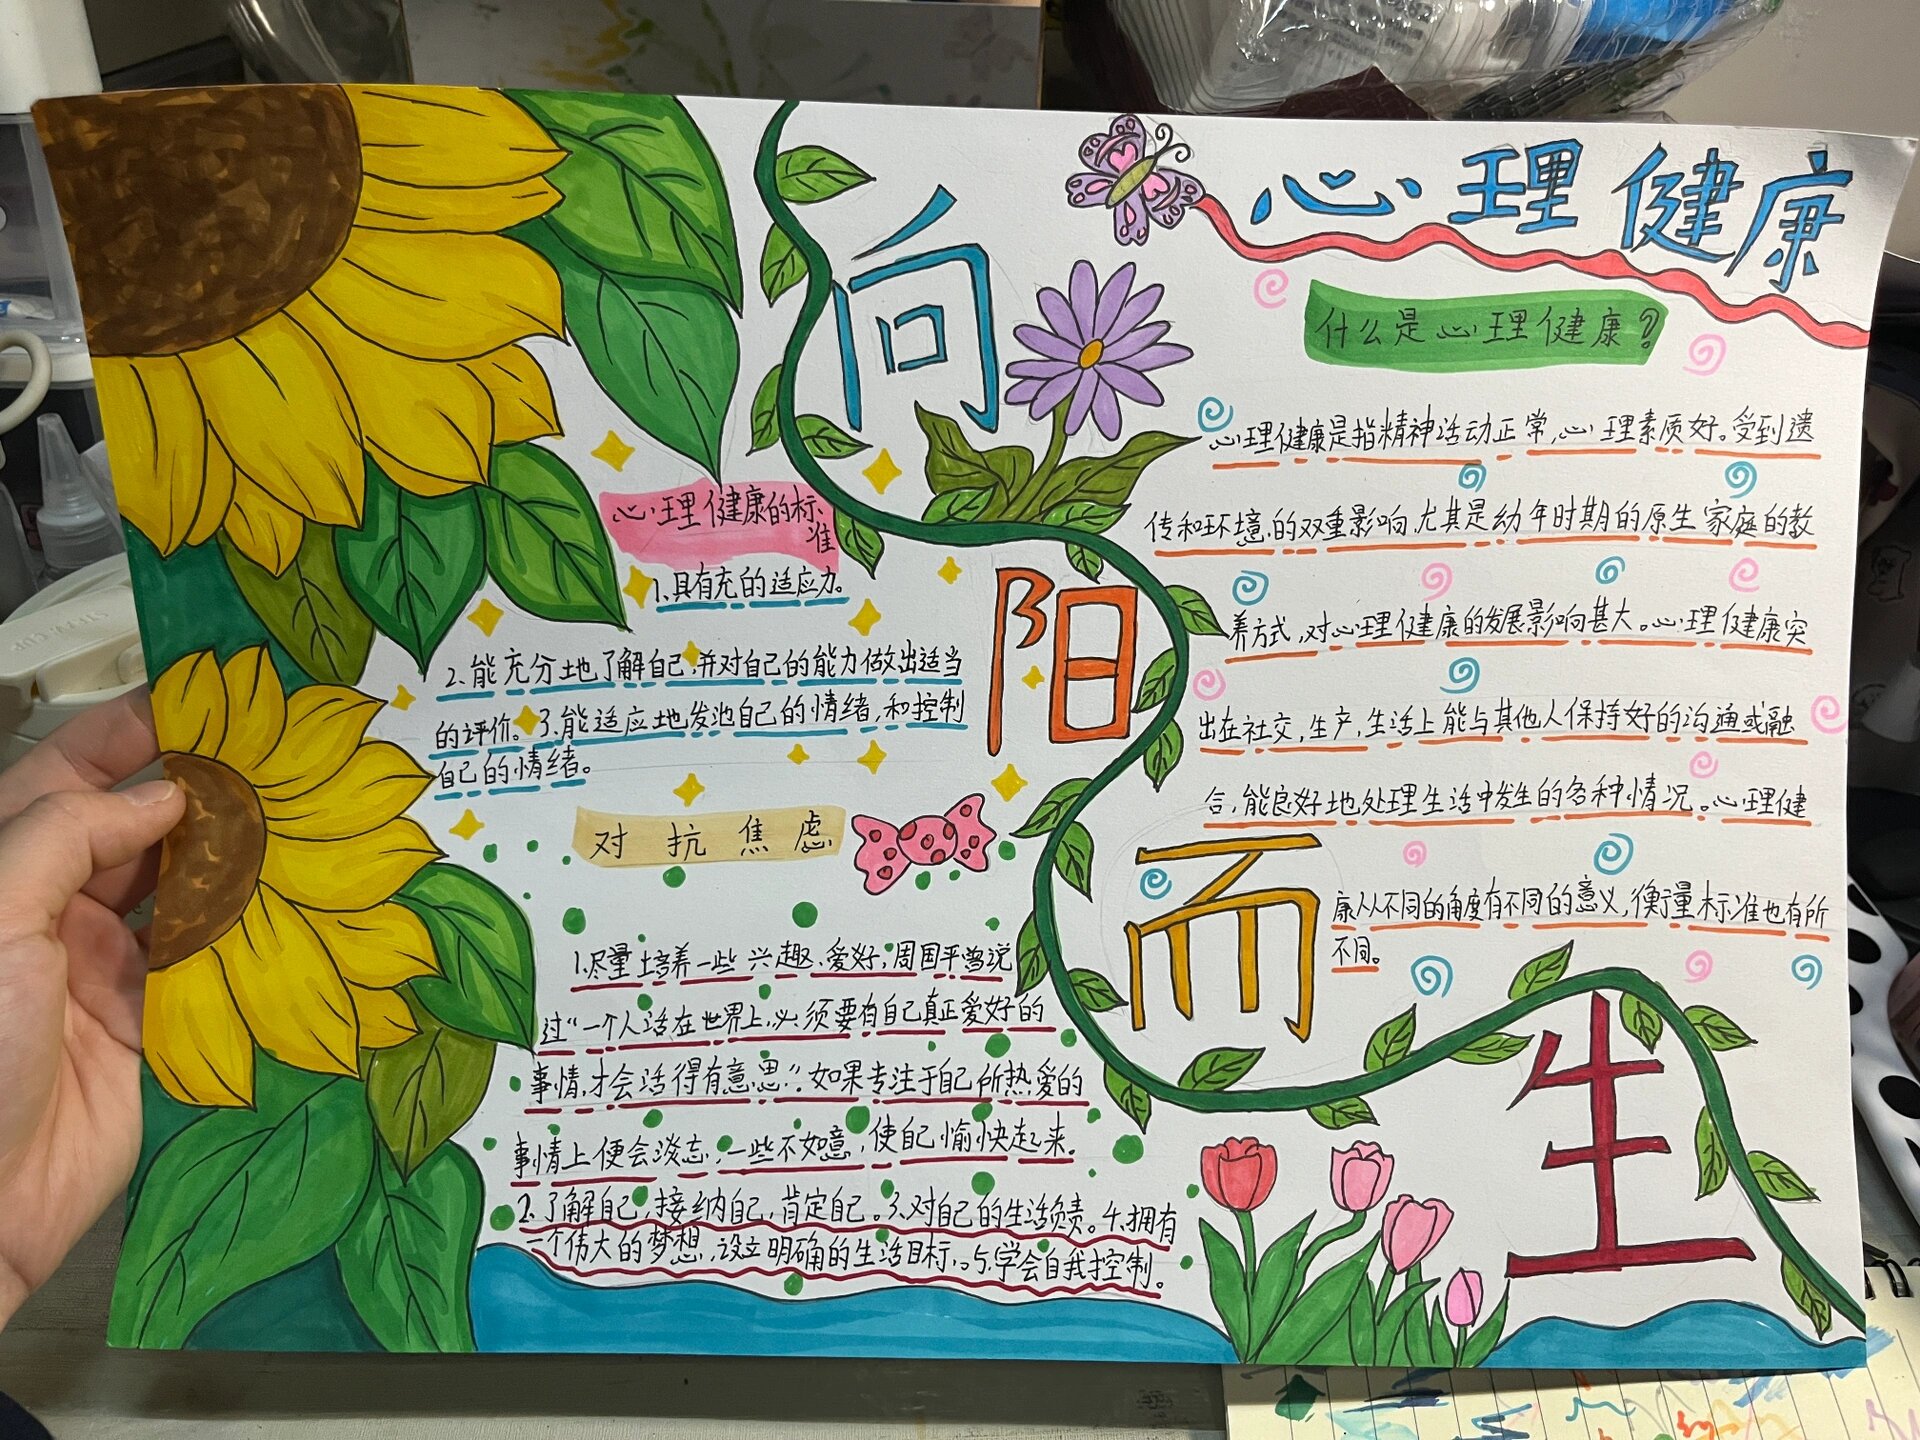 心理健康
向
阳
而
生
什么是心理健康?
心理健康是指精神活动正常,心理素质好。受到遗
传和环境的双重影响,尤其是幼年时期的原生家庭的教
养方式,对心理健康的发展影响甚大。心理健康突
出在社交,生产,生活上能与其他人保持好的沟通或融
合,能良好地处理生活中发生的各种情况。心理健
康从不同的角度有不同的意义,衡量标准也有所
不同。
心理健康的标
准
1、具有充的适应力。
2、能充分地了解自己,并对自己的能力做出适当
的评价。3、能适应地发池自己的情绪,和控制
自己的情绪。
对抗焦虑
1、尽量培养一些兴趣、爱好,周国平曾说
过“一个人活在世界上,必须要有自己真正爱好的
事情,才会活得有意思”。如果专注于自己所热爱的
事情上便会淡忘,一些不如意,使自己愉快起来。
2、了解自己,接纳自己,肯定自己。3、对自己的生活负责。4、拥有
一个伟大的梦想,设立明确的生活目标。5、学会自我控制。